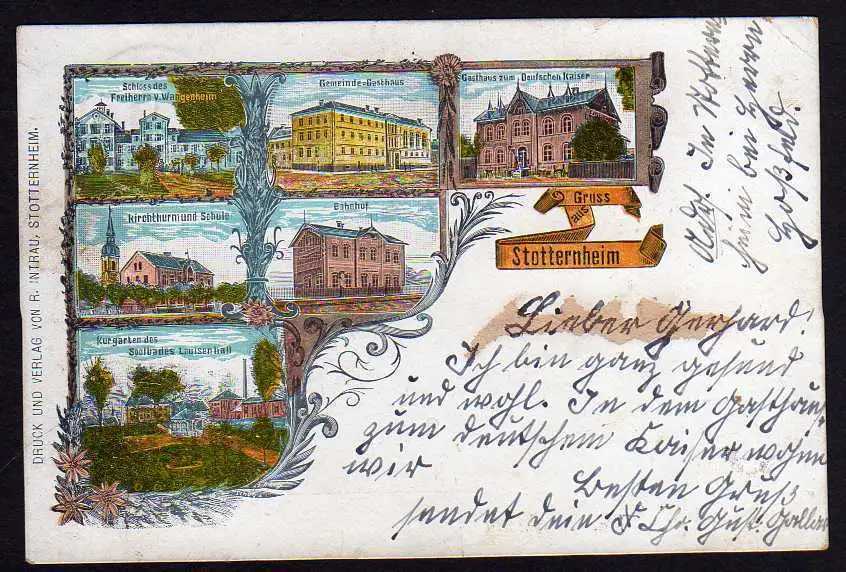 Schloss des
Freiherrn v. Wangenheim
Gemeinde-Gasthaus
Gasthaus zum Deutschen Kaiser
Kirchthurm und Schule
Bahnhof
Kurgarten des
Soolbades Louisenhall
Gruss
aus
Stotternheim
DRUCK UND VERLAG VON R. INTRAU, STOTTERNHEIM.
Lieber Gerhard!
Ich bin ganz gesund
und wohl. In dem Gasthaus
zum deutschem Kaiser wohnen
wir
Besten Gruß
sendet dein Chr. Gust.
Adr. In Stottern
heim bei Herrn